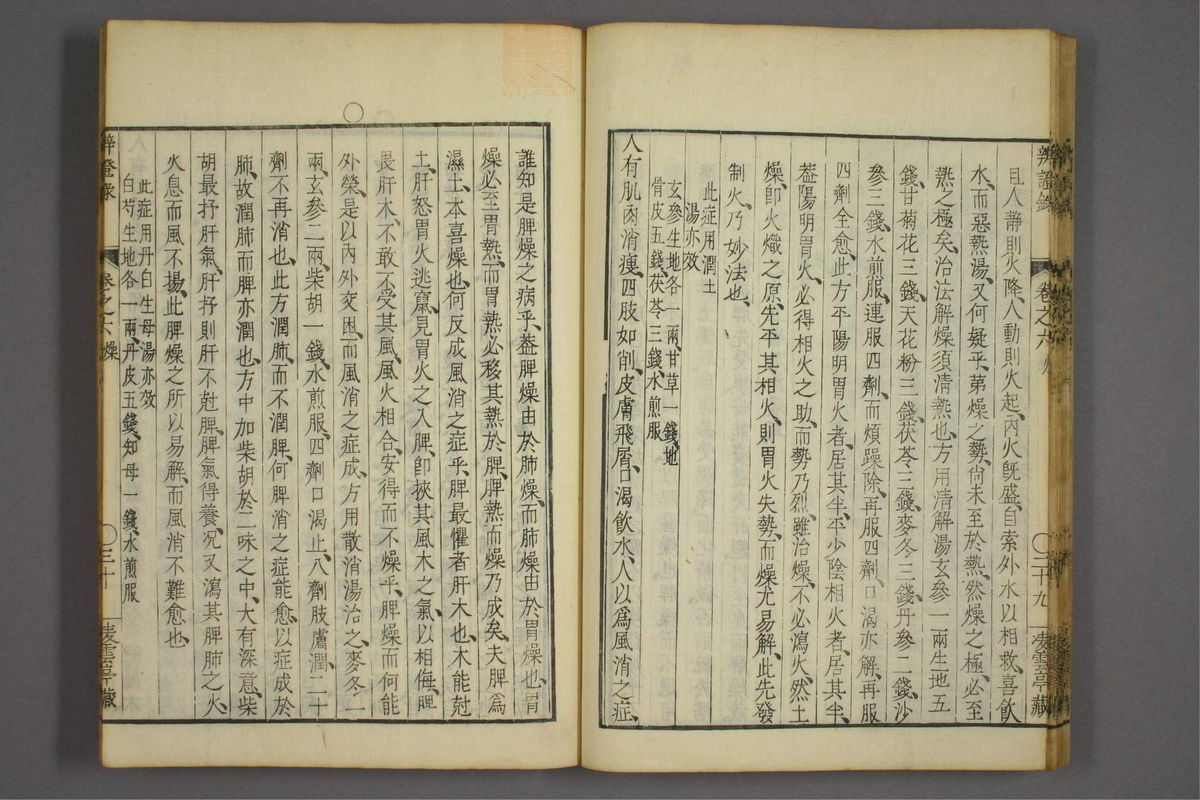 且人静則火降、人動則火起、内火旣盛、自索外水以相救、喜飲
水、而惡熱湯、又何疑乎、第燥之勢、尙未至於熱、然燥之極、必至
熱之極矣、治法解燥須清熱也、方用清解湯玄參一兩生地五
錢甘菊花三錢天花粉三錢茯苓三錢麥冬三錢丹參二錢沙
參三錢水煎服、連服四劑、而煩躁除、再服四劑、口渴亦解、再服
四劑全愈、此方平陽明胃火者、居其半、平少陰相火者、居其半、
葢陽明胃火、必得相火之助、而勢乃烈、雖治燥、不必瀉火、然土
燥卽火熾之原、先平其相火、則胃火失勢、而燥尤易解、此先發
制火、乃妙法也、
此症用潤土湯亦效
玄參生地各一兩、甘草一錢、地
骨皮五錢、茯苓三錢、水煎服
人有肌肉消瘦、四肢如削、皮膚飛屑、口渴飲水、人以爲風消之症、
辨證錄
卷之六
二十九
凌雲亭藏
誰知是脾燥之病乎、葢脾燥由於肺燥、而肺燥由於胃燥也、胃
燥必至胃熱、而胃熱必移其熱於脾、脾熱而燥乃成矣、夫脾爲
濕土、本喜燥也、何反成風消之症乎、脾最懼者肝木也、木能尅
土、肝怒胃火逃竄、見胃火之入脾、卽挾其風木之氣、以相侮、脾
畏肝木、不敢不受其風、風火相合、安得而不燥乎、脾燥而何能
外榮、是以內外交困、而風消之症成、方用散消湯治之、麥冬一
兩、玄參二兩、柴胡一錢、水煎服、四劑口渴止、八劑肢膚潤、二十
劑不再消也、此方潤肺、而不潤脾、何脾消之症能愈、以症成於
肺、故潤肺而脾亦潤也、方中加柴胡於二味之中、大有深意、柴
胡最抒肝氣、肝抒則肝不尅脾、脾氣得養、况又瀉其脾肺之火、
火息而風不揚、此脾燥之所以易解、而風消不難愈也
此症用丹白生母湯亦效
白芍生地各一兩、丹皮五錢、知母一錢、水煎服
辨證錄
卷之六燥
三十
凌雲亭藏